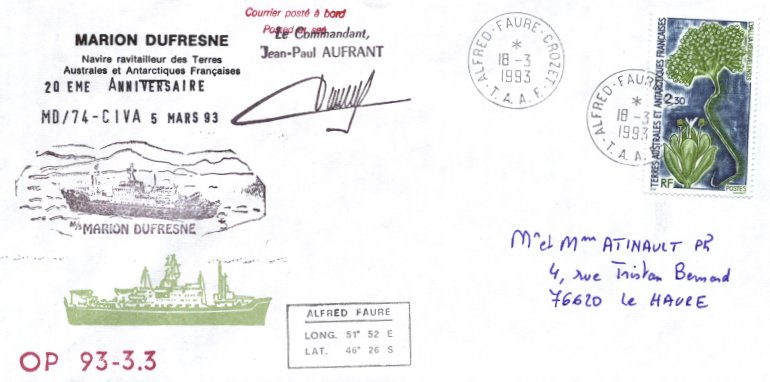 Courrier posté à bord
Posted at sea
Le Commandant,
Jean-Paul AUFRANT
MARION DUFRESNE
Navire ravitailleur des Terres
Australes et Antarctiques Françaises
20 EME ANNIVERSAIRE
MD/74-CIVA 5 MARS 93
M/S MARION DUFRESNE
OP 93-3.3
ALFRED FAURE
LONG. 51° 52 E
LAT. 46° 26 S
ALFRED-FAURE-CROZET
*
18-3
1993
·T.A.A.F.·
ALFRED-FAURE
*
18-3
1993
·T.A.A.
TERRES AUSTRALES ET ANTARCTIQUES FRANÇAISES
2,30
RF
POSTES
Mr et Mme ATINAULT PR
4, rue Tristan Bernard
76620 Le HAVRE